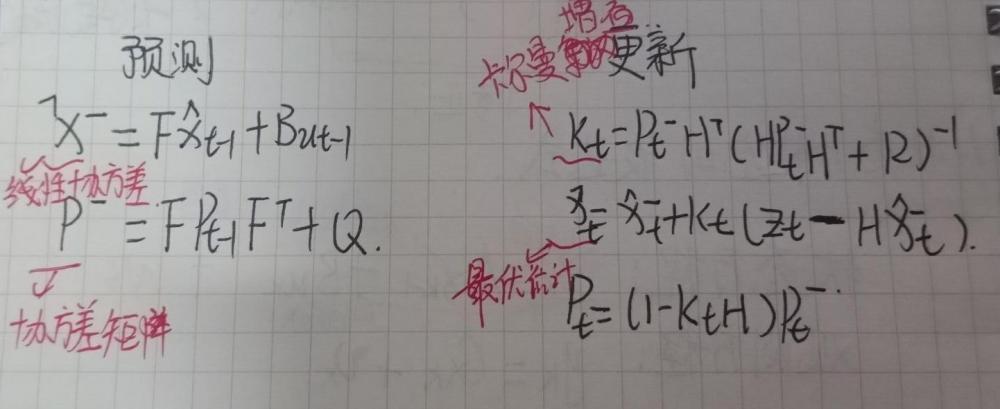 预测
x̂⁻ = Fx̂t-1 + But-1
线性协方差
P⁻ = FPt-1Fᵀ + Q.
协方差矩阵
增益
卡尔曼
更新
Kt = Pt⁻Hᵀ(HPt⁻Hᵀ + R)⁻¹
x̂t = x̂t⁻ + Kt(Zt - Hx̂t⁻).
最优估计
Pt = (1 - KtH)Pt⁻.